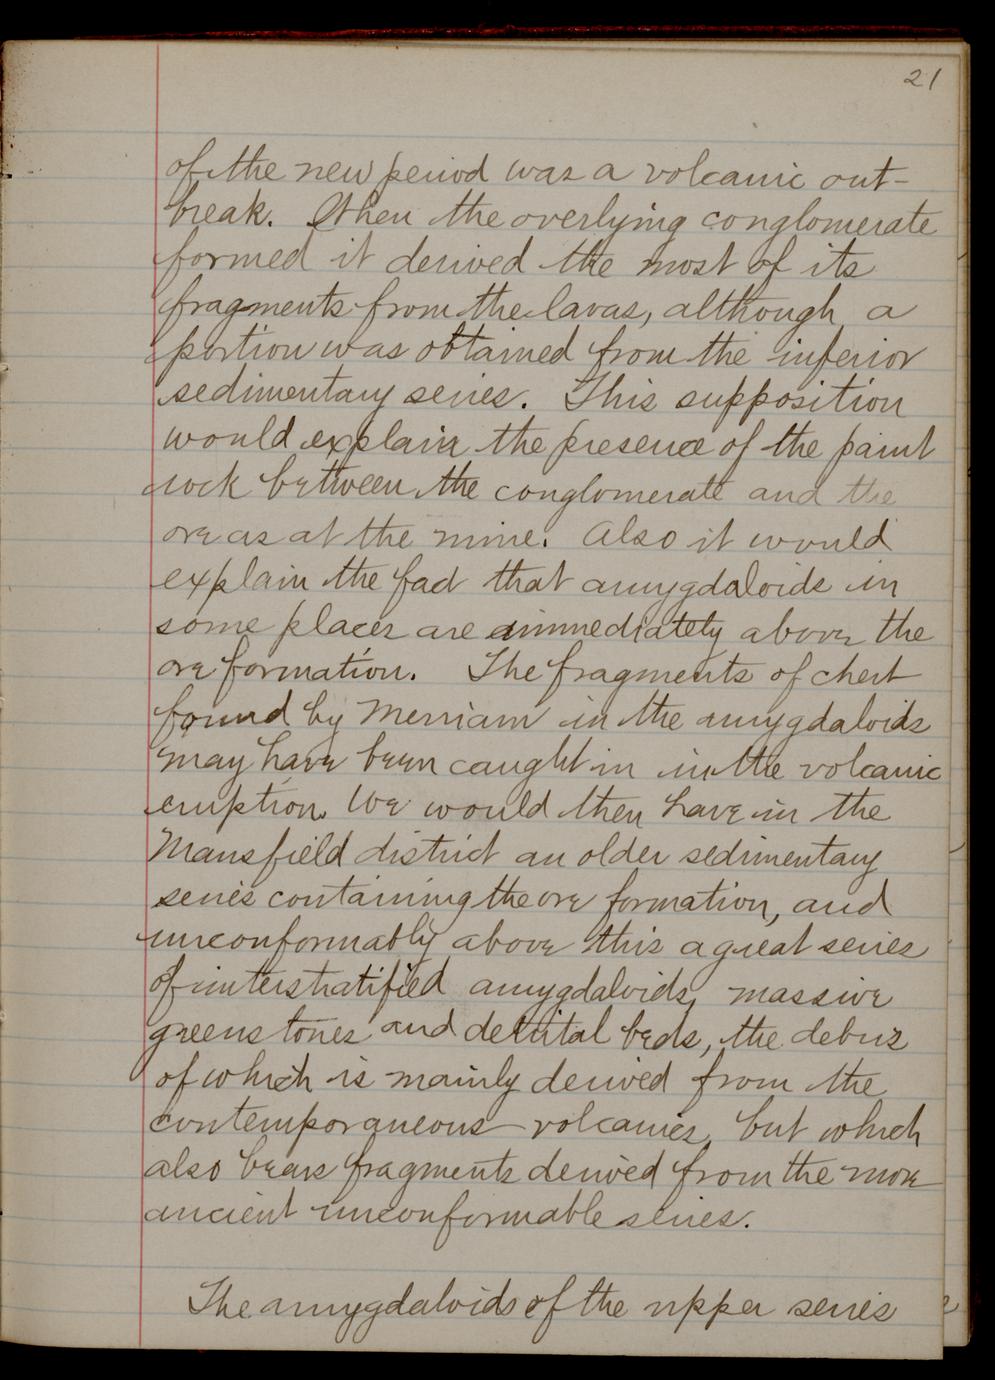 21
of the new period was a volcanic out-
break. When the overlying conglomerate
formed it derived the most of its
fragments from the lavas, although a
portion was obtained from the inferior
sedimentary series. This supposition
would explain the presence of the paint
rock between the conglomerate and the
ore as at the mine. Also it would
explain the fact that amygdaloids in
some places are immediately above the
ore formation. The fragments of chert
found by Merriam in the amygdaloids
may have been caught in in the volcanic
eruption. We would then have in the
Mansfield district an older sedimentary
series containing the ore formation, and
unconformably above this a great series
of interstratified amygdaloids, massive
greenstones and detrital beds, the debris
of which is mainly derived from the
contemporaneous volcanics, but which
also bears fragments derived from the more
ancient unconformable series.
The amygdaloids of the upper series